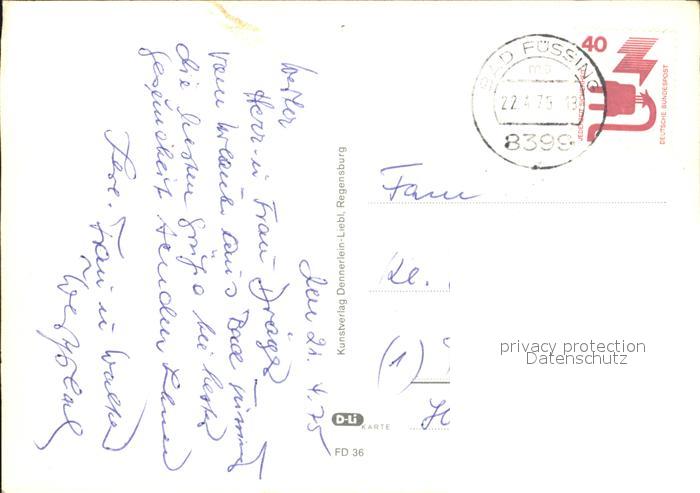 Den 21. 4. 75
Werter
Herr u Frau Dräger
vom Urlaub aus Bad Füssing
die besten Grüße bei bester
Gesundheit senden Ihnen
Frau u Walter
Kunstverlag Dennerlein-Liebl, Regensburg
D-Li
KARTE
FD 36
BAD FÜSSING
22.4.75
8399
40
DEUTSCHE BUNDESPOST
Fam
(1)
privacy protection
Datenschutz